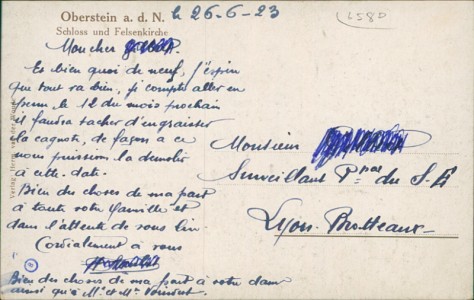 Oberstein a. d. N.
Schloss und Felsenkirche
le 26-6-23
Moncher
Es bien quoi de neuf, j'espère
que tout va bien, je compte aller en
perm le 12 du mois prochain
il faudra tacher d'engraisser
la cagnote, de façon a ce
nous puissions la demolir
à cette date.
Bien des choses de ma part
à toute votre famille et
dans l'attente de vous lire
Cordialement à vous
Bien des choses de ma part à votre dame
ainsi qu'à Mr et Me
Monsieur
Surveillant Ppal du S.E
Lyon-Brotteaux